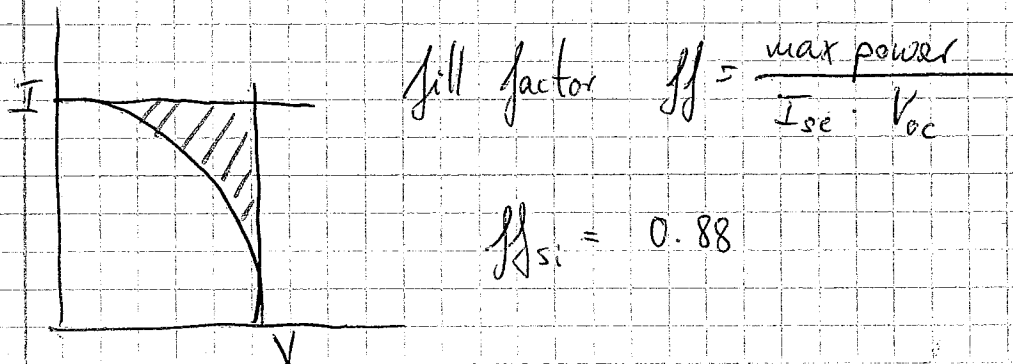 I
fill factor ff = max power / I_sc · V_oc
ff_si = 0.88
V